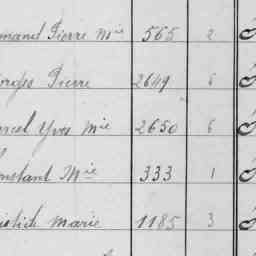 mand Pierre Mie 565 2
orges Pierre 2649 6
arcel Yves Mie 2650 6
onstant Mie 333 1
istide Marie 1185 3